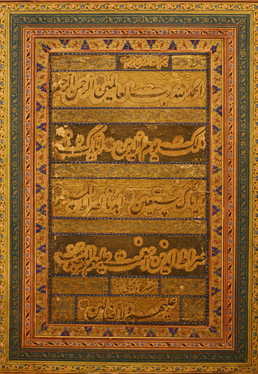 الحمد لله رب العالمين الرحمن الرحيم
مالك يوم الدين اياك نعبد
واياك نستعين اهدنا الصراط المستقيم
صراط الذين انعمت عليهم غير المغضوب
عليهم ولا الضالين